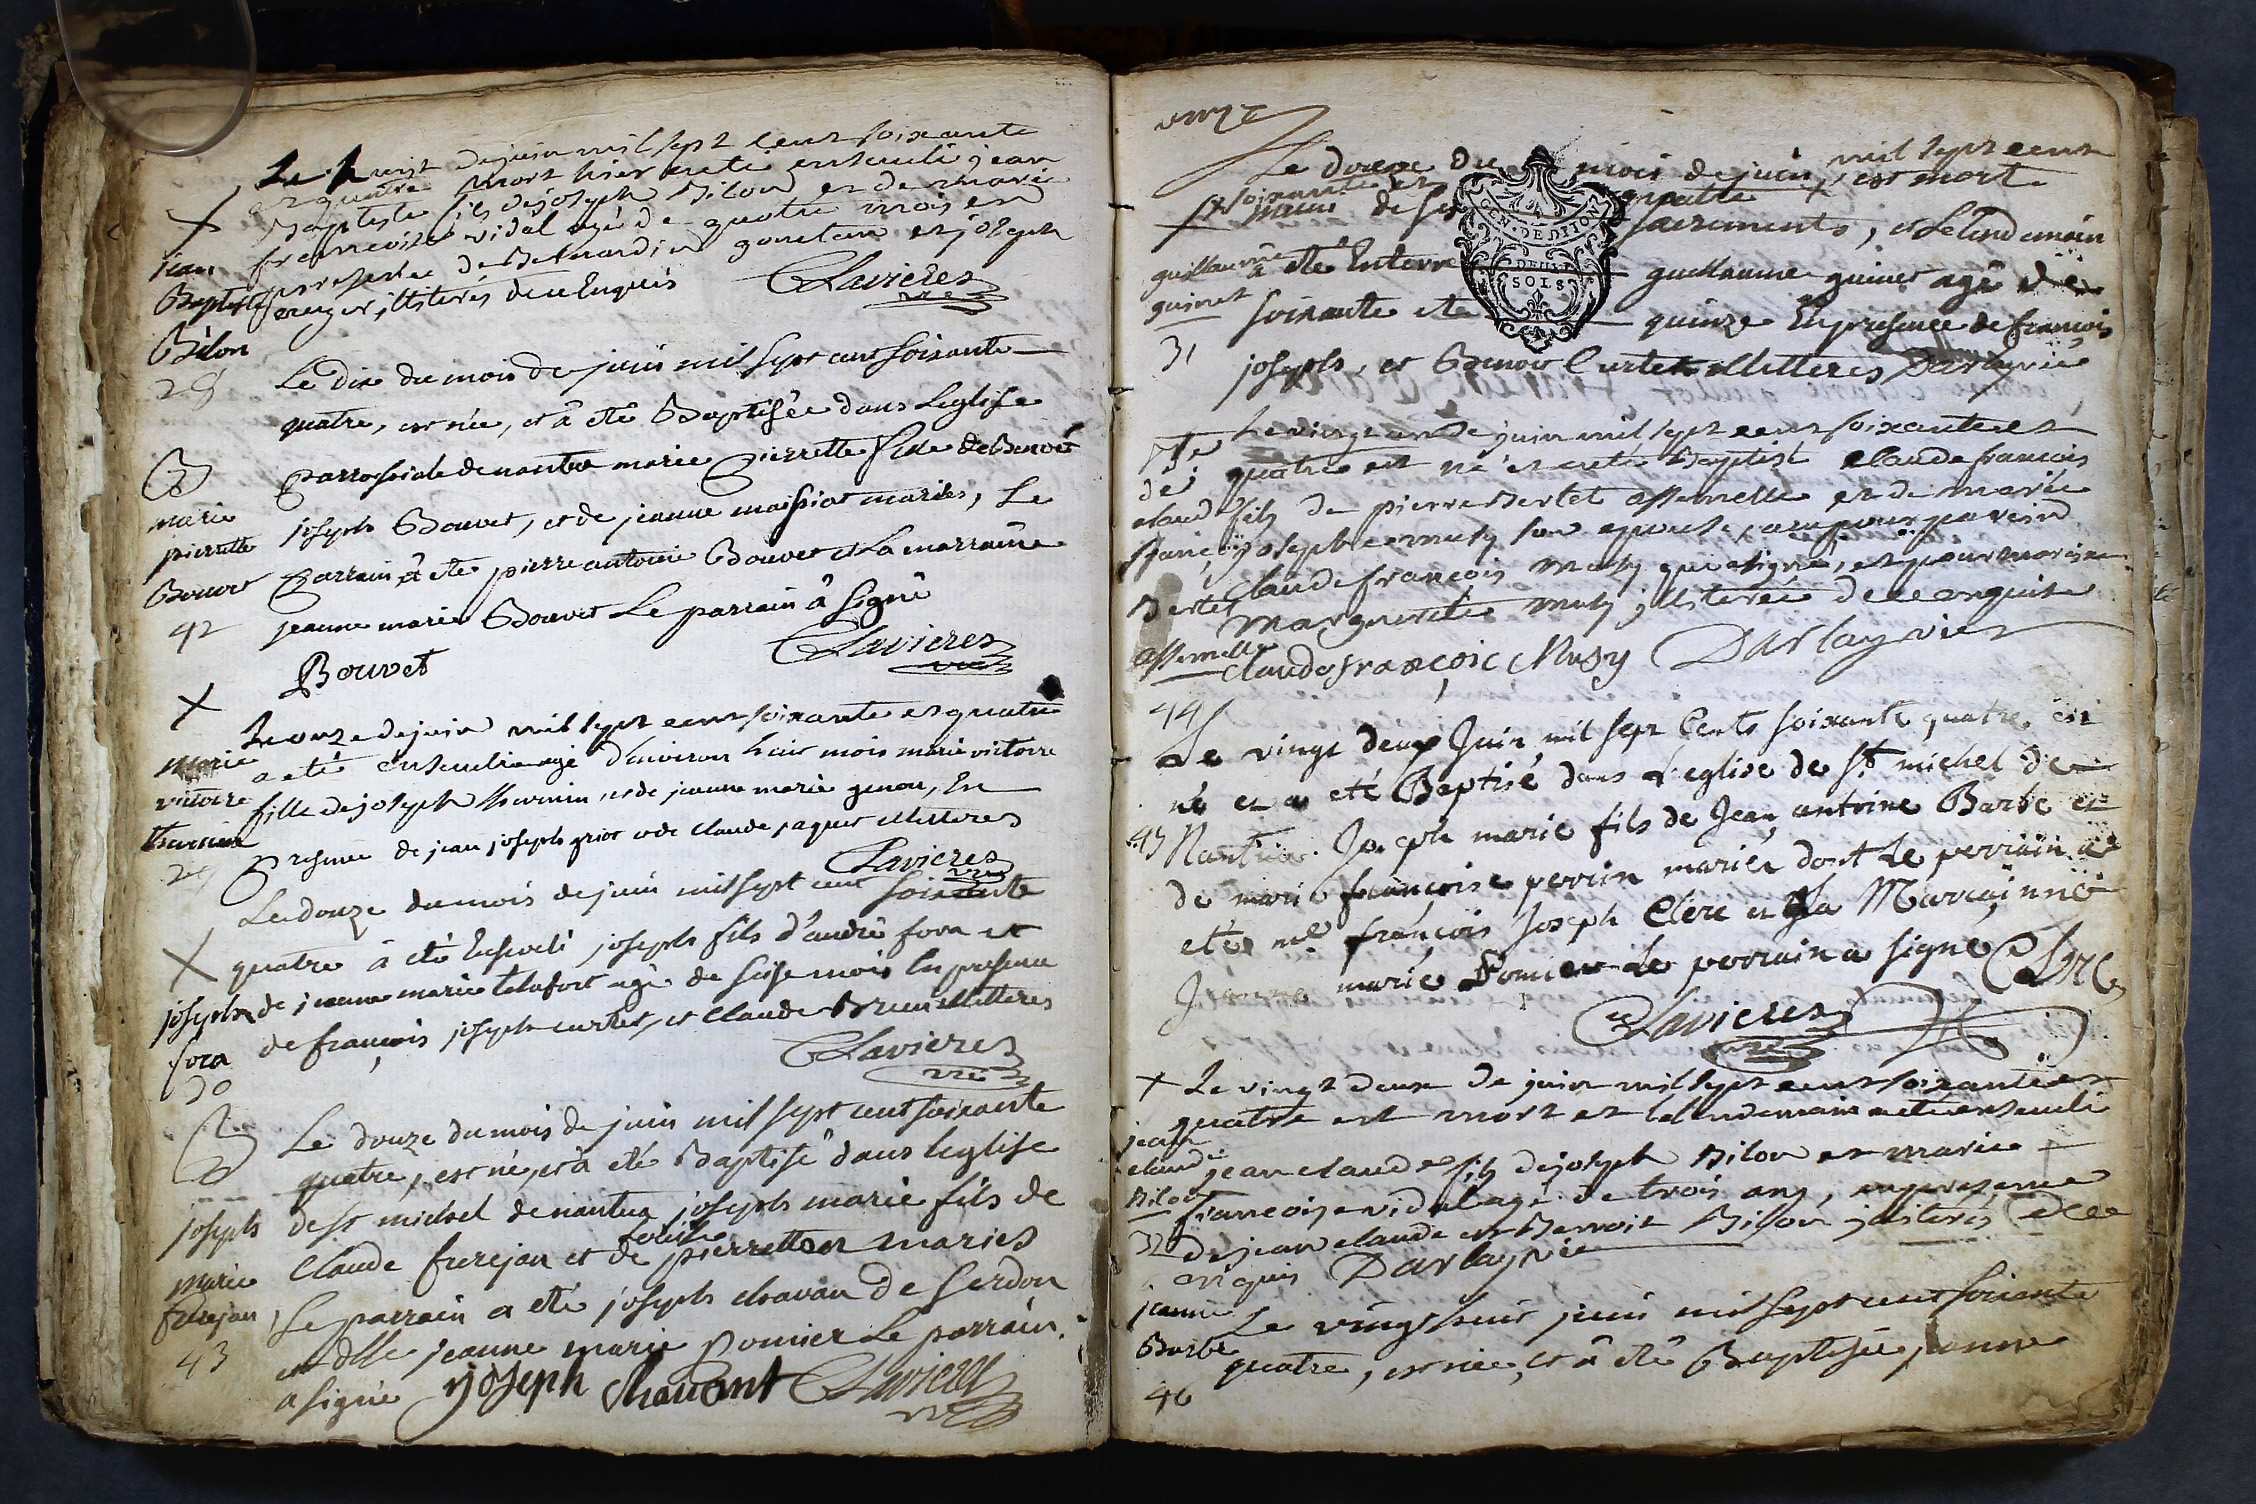 Le huit de juin mil sept cent soixante
et quatre mort hier a eté enseveli jean
Baptiste fils de joseph Bilon et de marie
francoise vidal agé de quatre mois en
presence de Bernardin gonetan et joseph
illiterés de ce Enquis Clavieres
vic
X
jean
Baptiste
Bilon
28
Le dix du mois de juin mil sept cent soixante
quatre, est née, et â eté Baptisêe dans Leglise
parrossiale de nantua marie pierrette fille de Benoit
joseph Bouvet, et de jeanne maissiat mariés, Le
parrain â eté pierre antoine Bouvet et La marraine
jeanne marie Bouvet Le parrain â signé
Bouvet Clavieres
vic
B
marie
pierrette
Bouvet
42
Le onze de juin mil sept cent soixante et quatre
a eté ensevelie agé d'environ huit mois marie victoire
fille de joseph thurnin, et de jeanne marie genou, En
presence de jean joseph griot et de claude paquet illitteres
Clavieres
vic
X
marie
victoire
29
Le douze du mois de juin mil sept cent soixante
quatre â eté Enseveli joseph fils d'andré fora et
de jeanne marie telafort agé de seise mois En presence
de françois joseph curtet, et claude Brun illitteres
Clavieres
vic
X
joseph
fora
30
Le douze du mois de juin mil sept cent soixante
quatre, est né, et â eté Baptisé dans leglise
de st michel de nantua joseph marie fils de
claude frerejan et de pierrette mariés
Le parrain a eté joseph chavan de Serdon
et dlle jeanne marie pomier Le parrain
a signé joseph chavant Clavieres
vic
B
joseph
marie
frerejan
43
onze
Le douze du mois de juin mil sept cent
soixante et quatre est mort
muni de ses sacrements, et Le lendemain
â eté Enterré guillaume guinet agé de
soixante et quinze En presence de françois
joseph, et Benoit Curtet illitteres Darlay vic
GEN. DEDITION
DEUX
SOLS
X
guillaume
guinet
31
Le vingt un de juin mil sept cent soixante et
quatre est né et a eté Baptisé claude francois
fils de pierre Bertet assemelle et de marie
josephe musy son epouse, a eu pour parein
claude françois Musy qui a signé, et pour mareine
marguerite musy illiterée de ce enquise
claude françois Musy Darlay vic
claud
franç
Bertet
assemelle
44
Le vingt deux Juin mil sept Cents soixante quatre est
né et a eté Baptisé dans L'eglise de st michel de
Nantua Joseph marie fils de Jean antoine Barbe et
de marie françoise perrin mariés dont le perrain a
eté me françois Joseph Clerc et La Marrainne
Jeanne marie Pomier Le perrain a signé Clerc
Clavieres
vic
45
X Le vingt deux de juin mil sept cent soixante et
quatre est mort et le lendemain a eté enseveli
jean claude fils de joseph Bilon et marie
francoise vidal agé de trois ans, en presence
de jean claude et Benoit Bilon illiterés de ce
enquis Darlay vic
jean
claude
Bilon
32
Le vingt huit juin mil sept cent soixante
quatre, est née, et â eté Baptisée jeanne
jeanne
Barbe
46